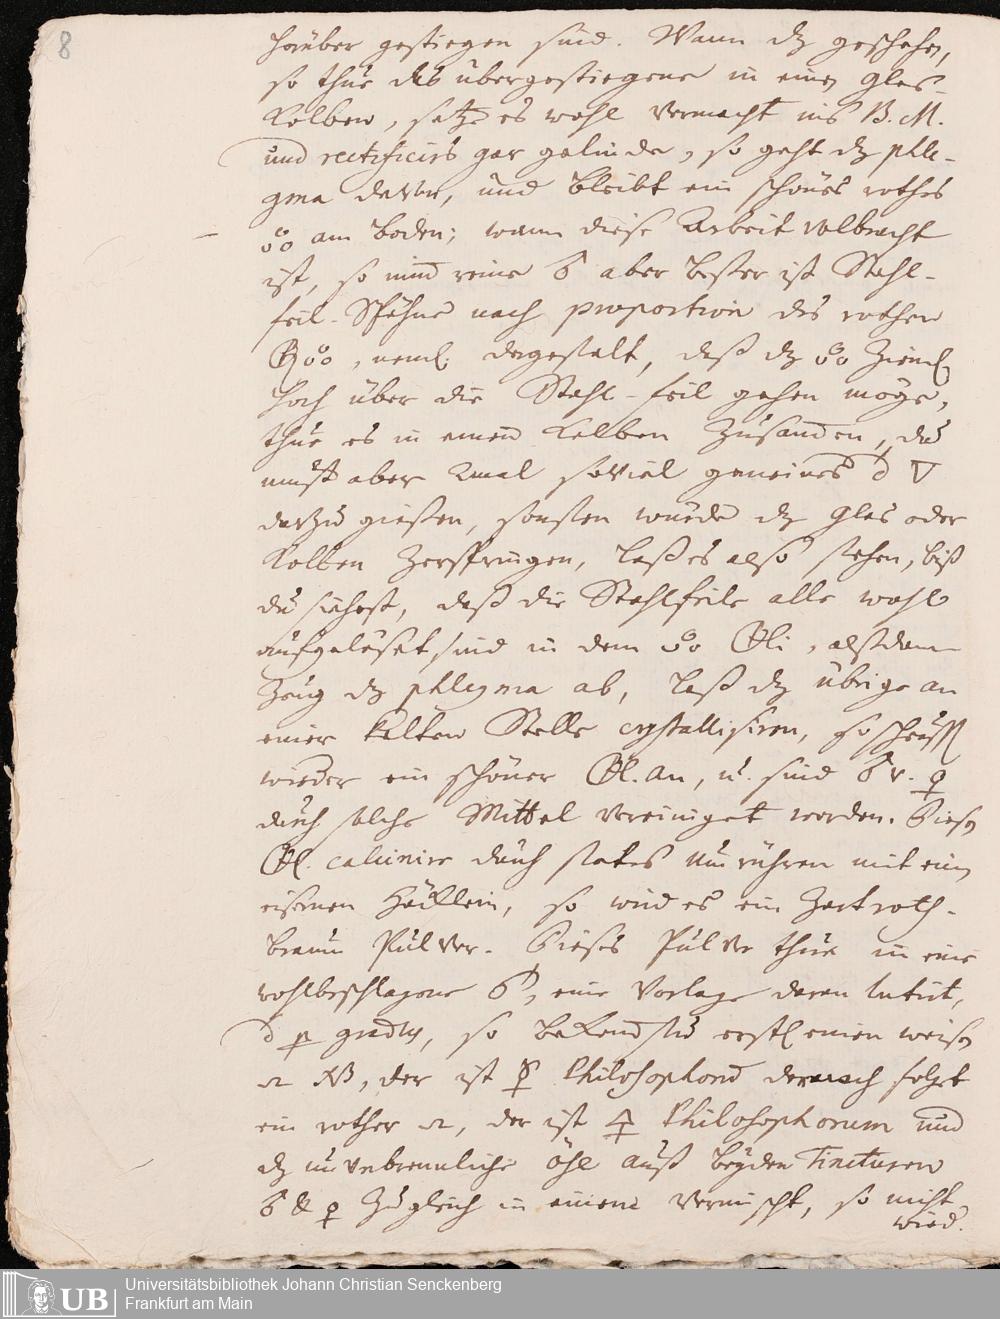 8
herüber gestiegen sind. Wann dz geschehen,
so thue das übergestiegene in einen Glas-
Kolben, setze es wohl vermacht ins B. M.
und rectificirs gar gelinde, so geht dz phle-
gma davon, und bleibt ein schönes rothes
am Boden; wann diese Arbeit vollbracht
ist, so nim reine ♂ aber besser ist Stahl-
feil-Spähne nach proportion des rothen
, neml. dergestalt, daß dz ziemlich
hoch über die Stahl-feil gehen möge,
thue es in einen Kolben zusammen, du
must aber 2mal soviel gemeines ▽
darzu gießen, sonsten würde dz Glas oder
Kolben zerspringen, laß es also stehen, biß
du siehest, daß die Stahlfeile alle wohl
aufgelöset sind in dem Oli, alsdann
zeug dz phlegma ab, laß dz übrige an
einer kalten Stelle crystallisiren, so scheust
wieder ein schöner an, u. sind ♂ u. ♀
durch solche Mittel vereiniget worden. Diesen
calcinire durch stetes umrühren mit einem
eisernen Häcklein, so wird es ein zart roth-
braun Pulver. Dieses Pulver thue in eine
wohlbeschlagene, eine Vorlage daran lutirt,
gradus, so bekomstu erstl. einen weisen
, der ist Philosophorum darnach folgt
ein rother, der ist Philosophorum und
dz unverbrennliche öhl auß beyden Tincturen
♂ & ♀ zugleich in einem vermischt, so nicht
wird.
Universitätsbibliothek Johann Christian Senckenberg
UB Frankfurt am Main